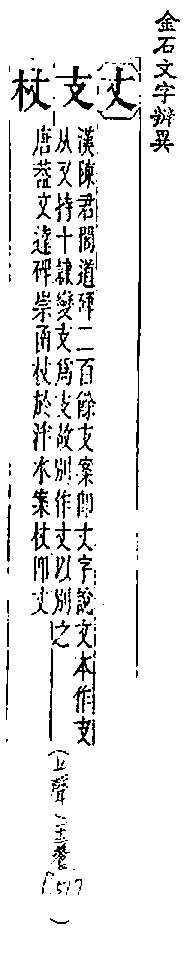 金石文字辨異
丈
支
杖
漢陳君閣道碑二百餘支案卽丈字說文本作支
从又持十隸變支爲支故別作丈以別之
唐蓋文達碑崇函杖於泮水案杖卽丈
(上聲 養 517)